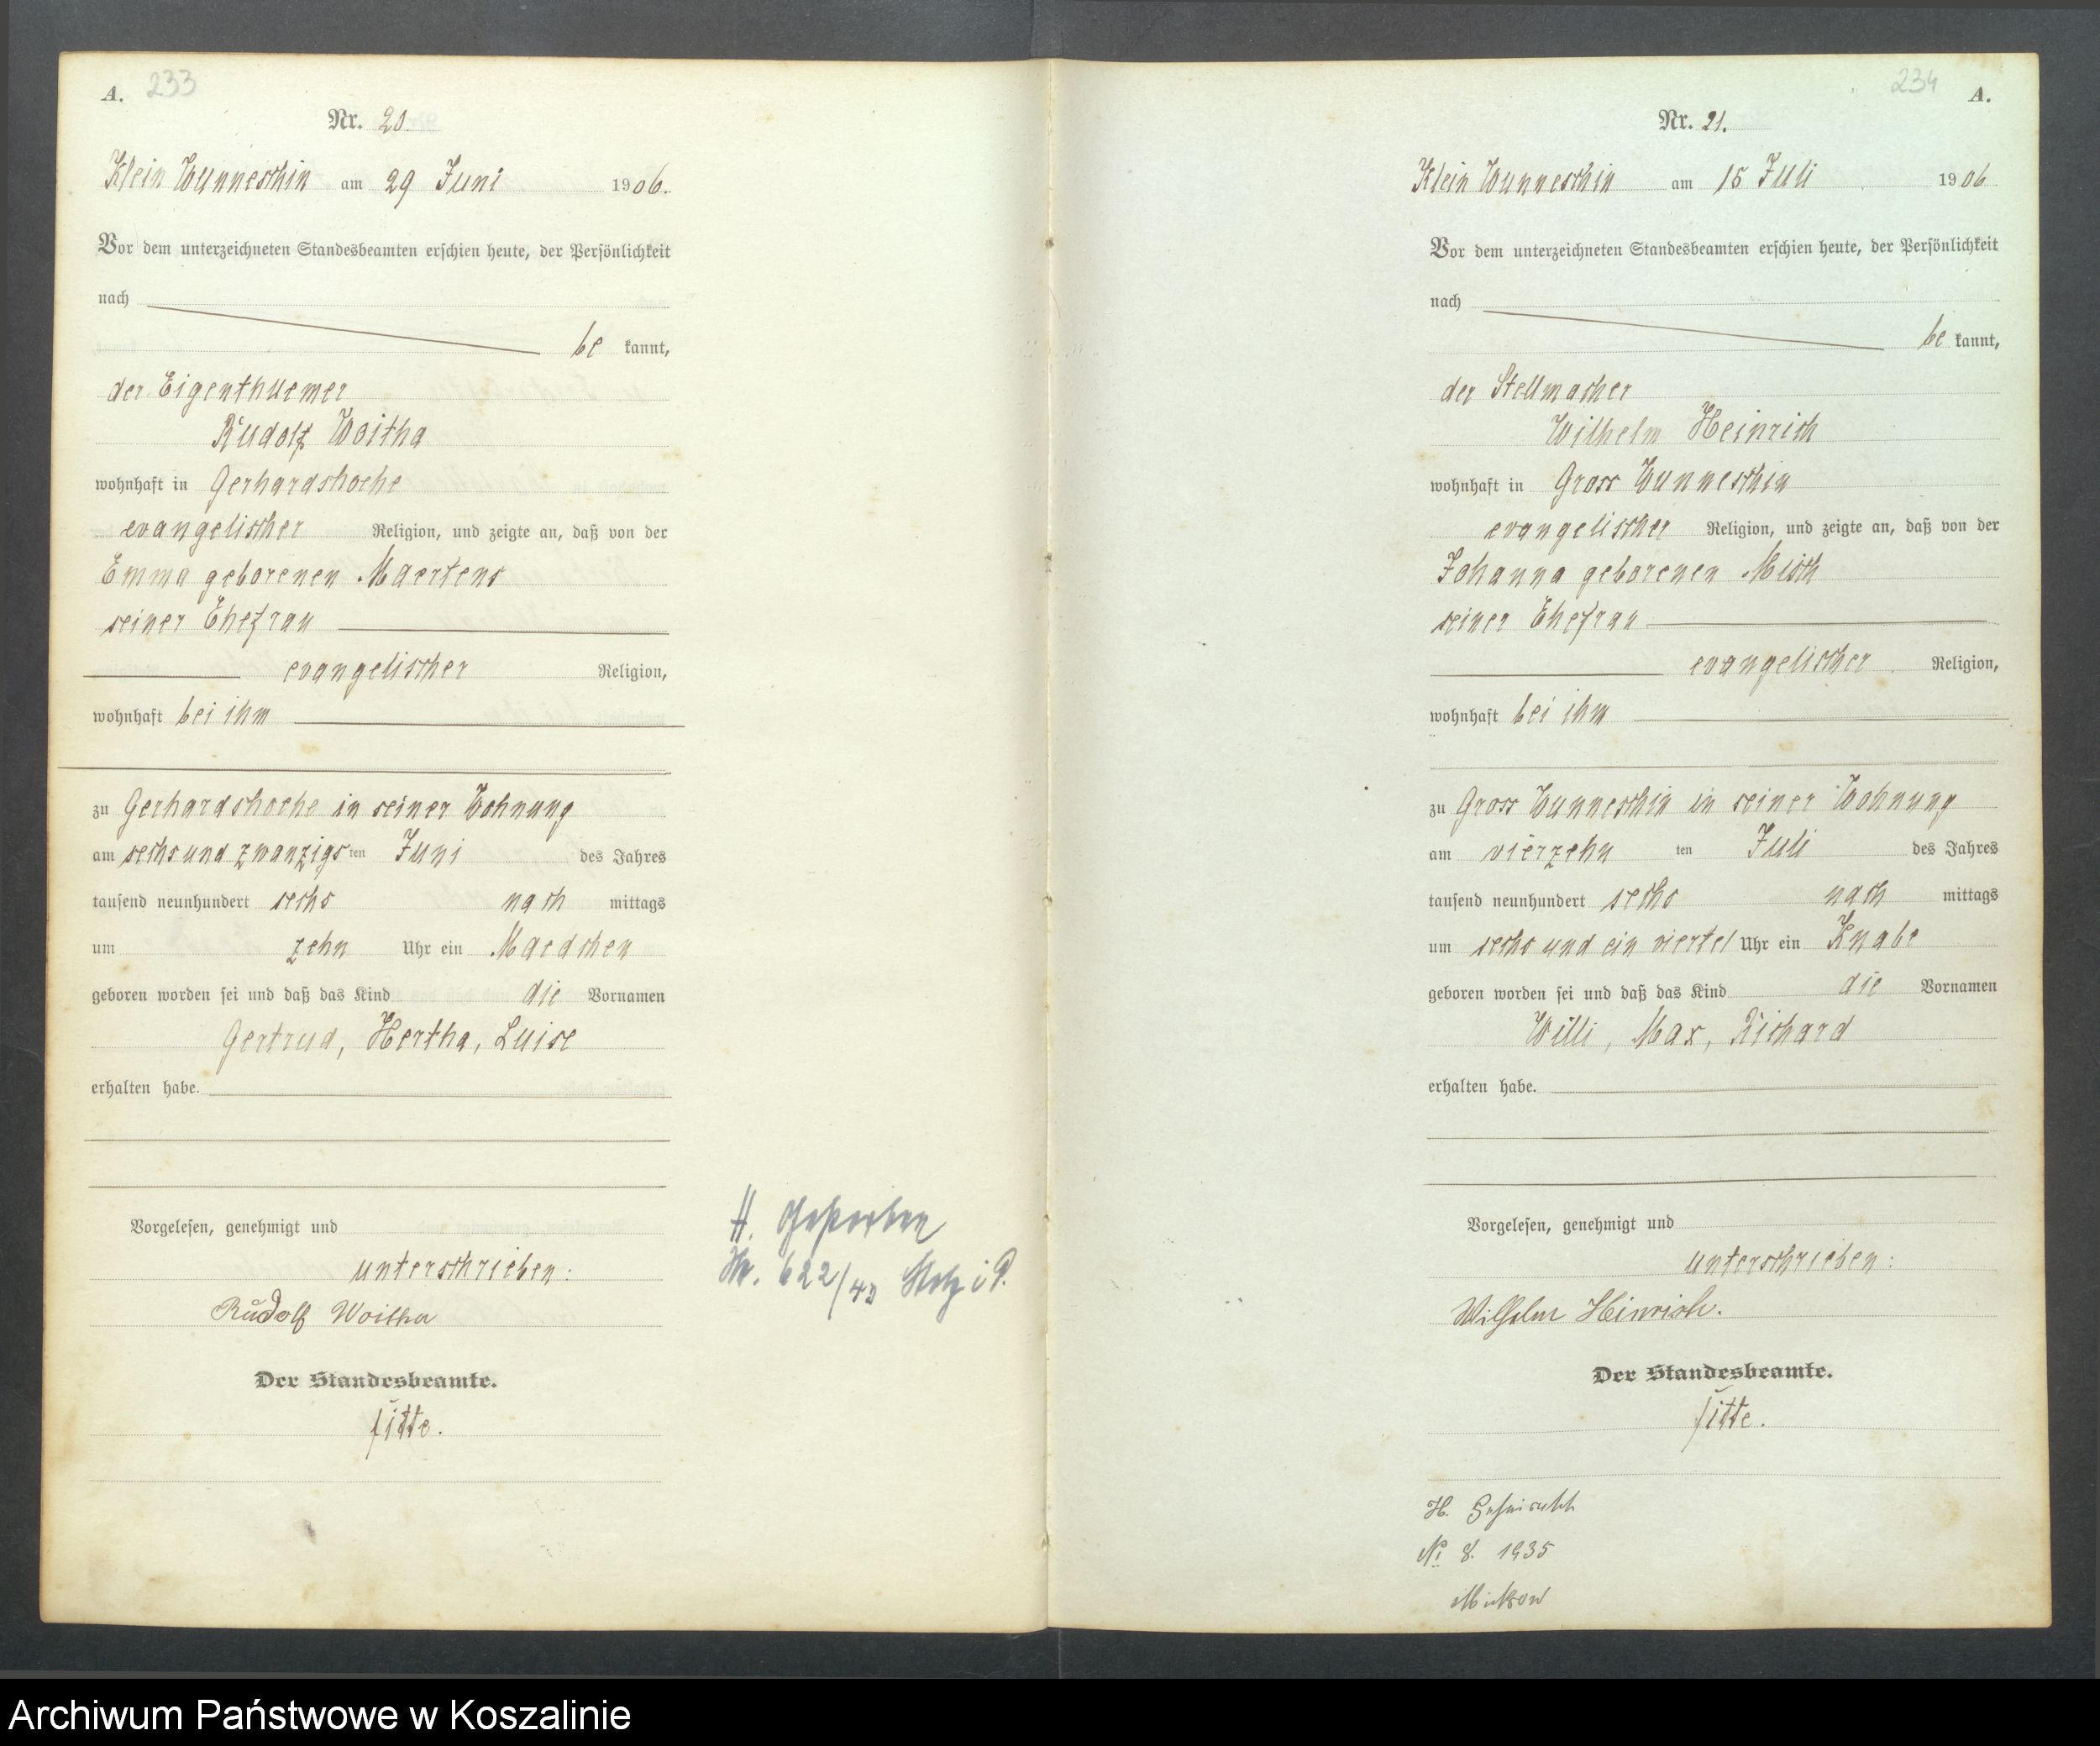 A. 233
Nr. 20.
Klein Wunneschin am 29 Juni 1906.
Vor dem unterzeichneten Standesbeamten erschien heute, der Persönlichkeit
nach
be kannt,
der Eigenthuemer
Rudolf Woitha
wohnhaft in Gerhardshoehe
evangelischer Religion, und zeigte an, daß von der
Emma geborenen Maertens
seiner Ehefrau
evangelischer Religion,
wohnhaft bei ihm
zu Gerhardshoehe in seiner Wohnung
am sechs und zwanzigs ten Juni des Jahres
tausend neunhundert sechs nach mittags
um zehn Uhr ein Maedchen
geboren worden sei und daß das Kind die Vornamen
Gertrud, Hertha, Luise
erhalten habe.
Vorgelesen, genehmigt und
unterschrieben:
Rudolf Woitha
Der Standesbeamte.
Titte.
H. Gestorben
Nr. 622/43 Stolp i P.
234 A.
Nr. 21.
Klein Wunneschin am 15 Juli 1906
Vor dem unterzeichneten Standesbeamten erschien heute, der Persönlichkeit
nach
be kannt,
der Stellmacher
Wilhelm Heinrich
wohnhaft in Gross Wunneschin
evangelischer Religion, und zeigte an, daß von der
Johanna geborenen Misch
seiner Ehefrau
evangelischer Religion,
wohnhaft bei ihm
zu Gross Wunneschin in seiner Wohnung
am vierzehn ten Juli des Jahres
tausend neunhundert sechs nach mittags
um sechs und ein viertel Uhr ein Knabe
geboren worden sei und daß das Kind die Vornamen
Willi, Max, Richard
erhalten habe.
Vorgelesen, genehmigt und
unterschrieben:
Wilhelm Heinrich.
Der Standesbeamte.
Titte.
H. Geheiratet
No 8. 1935
Mickrow
Archiwum Państwowe w Koszalinie